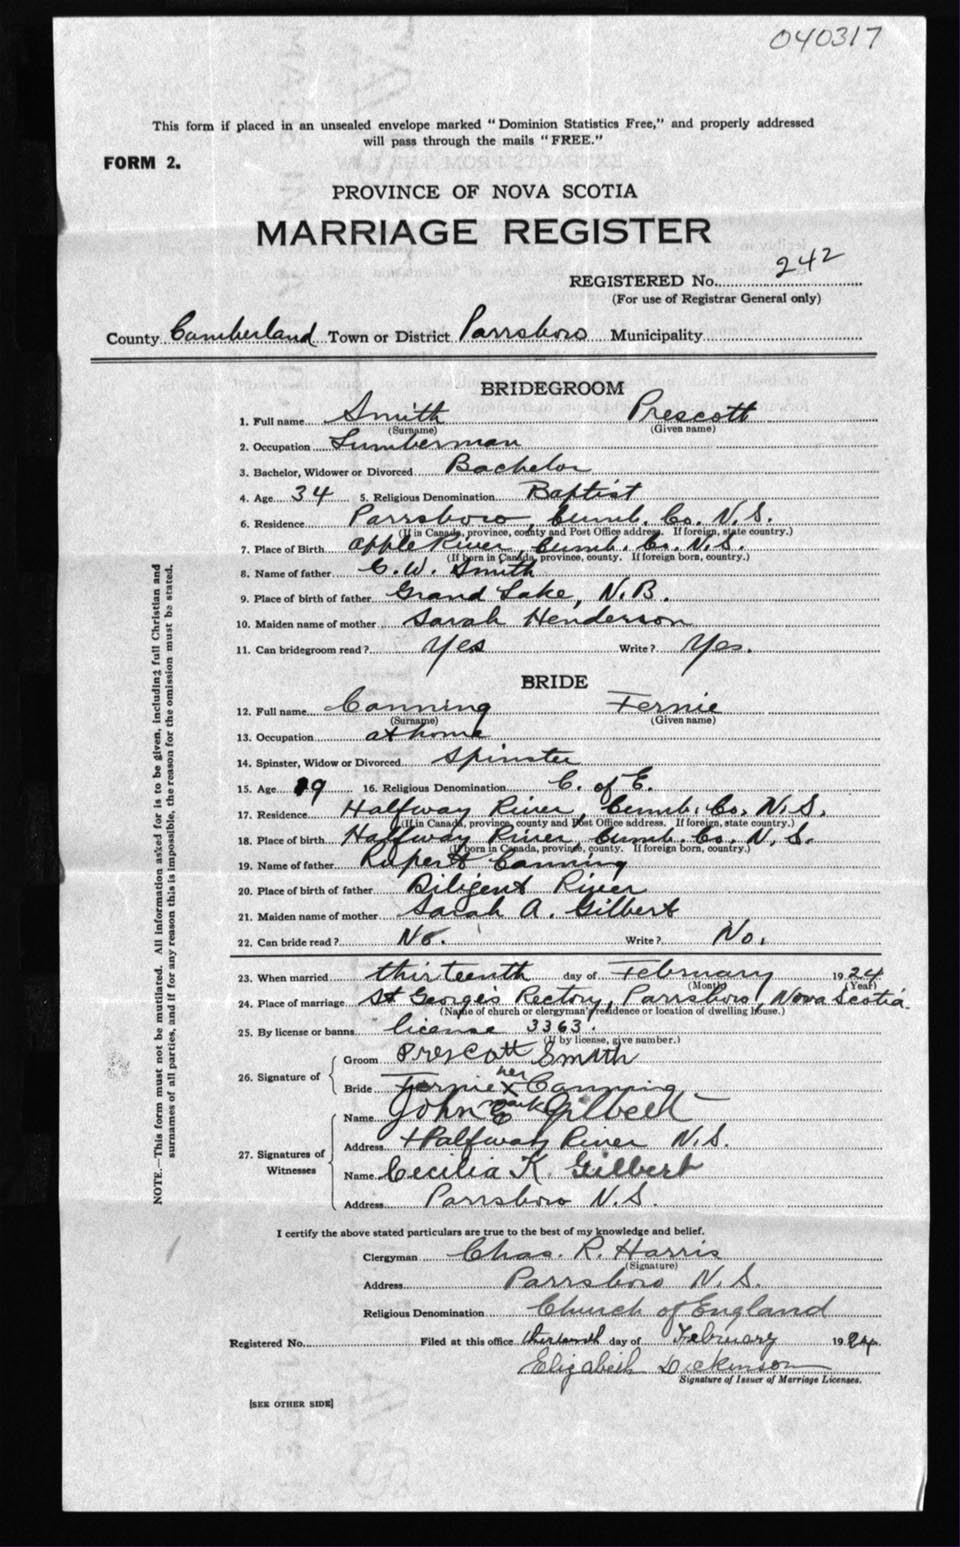 040317
This form if placed in an unsealed envelope marked "Dominion Statistics Free," and properly addressed
will pass through the mails "FREE."
FORM 2.
PROVINCE OF NOVA SCOTIA
MARRIAGE REGISTER
REGISTERED No. 242
(For use of Registrar General only)
County Cumberland Town or District Parrsboro Municipality
BRIDEGROOM
1. Full name Smith Prescott
(Surname) (Given name)
2. Occupation Lumberman
3. Bachelor, Widower or Divorced Bachelor
4. Age 34 5. Religious Denomination Baptist
6. Residence Parrsboro, Cumb. Co. N.S.
(If in Canada, province, county and Post Office address. If foreign, state country.)
7. Place of Birth Apple River, Cumb. Co. N.S.
(If born in Canada, province, county. If foreign born, country.)
8. Name of father C. W. Smith
9. Place of birth of father Grand Lake, N.B.
10. Maiden name of mother Sarah Henderson
11. Can bridegroom read? Yes Write? Yes.
BRIDE
12. Full name Canning Fernie
(Surname) (Given name)
13. Occupation at home
14. Spinster, Widow or Divorced Spinster
15. Age 19 16. Religious Denomination C. of E.
17. Residence Halfway River, Cumb. Co. N.S.
(If in Canada, province, county and Post Office address. If foreign, state country.)
18. Place of birth Halfway River, Cumb. Co. N.S.
(If born in Canada, province, county. If foreign born, country.)
19. Name of father Rupert Canning
20. Place of birth of father Diligent River
21. Maiden name of mother Sarah A. Gilbert
22. Can bride read? No. Write? No.
23. When married thirteenth day of February 1924
(Month) (Year)
24. Place of marriage St George's Rectory, Parrsboro, Nova Scotia
(Name of church or clergyman's residence or location of dwelling house.)
25. By license or banns license 3363.
(If by license, give number.)
26. Signature of
Groom Prescott Smith
her
Bride Fernie X Canning
mark
27. Signatures of Witnesses
Name John E Gilbert
Address Halfway River N.S.
Name Cecilia K. Gilbert
Address Parrsboro N.S.
I certify the above stated particulars are true to the best of my knowledge and belief.
Clergyman Chas. R. Harris
(Signature)
Address Parrsboro N.S.
Religious Denomination Church of England
Registered No. Filed at this office thirteenth day of February 1924.
Elizabeth Dickinson
Signature of Issuer of Marriage Licenses.
[SEE OTHER SIDE]
NOTE.—This form must not be mutilated. All information asked for is to be given, including full Christian and
surnames of all parties, and if for any reason this is impossible, the reason for the omission must be stated.